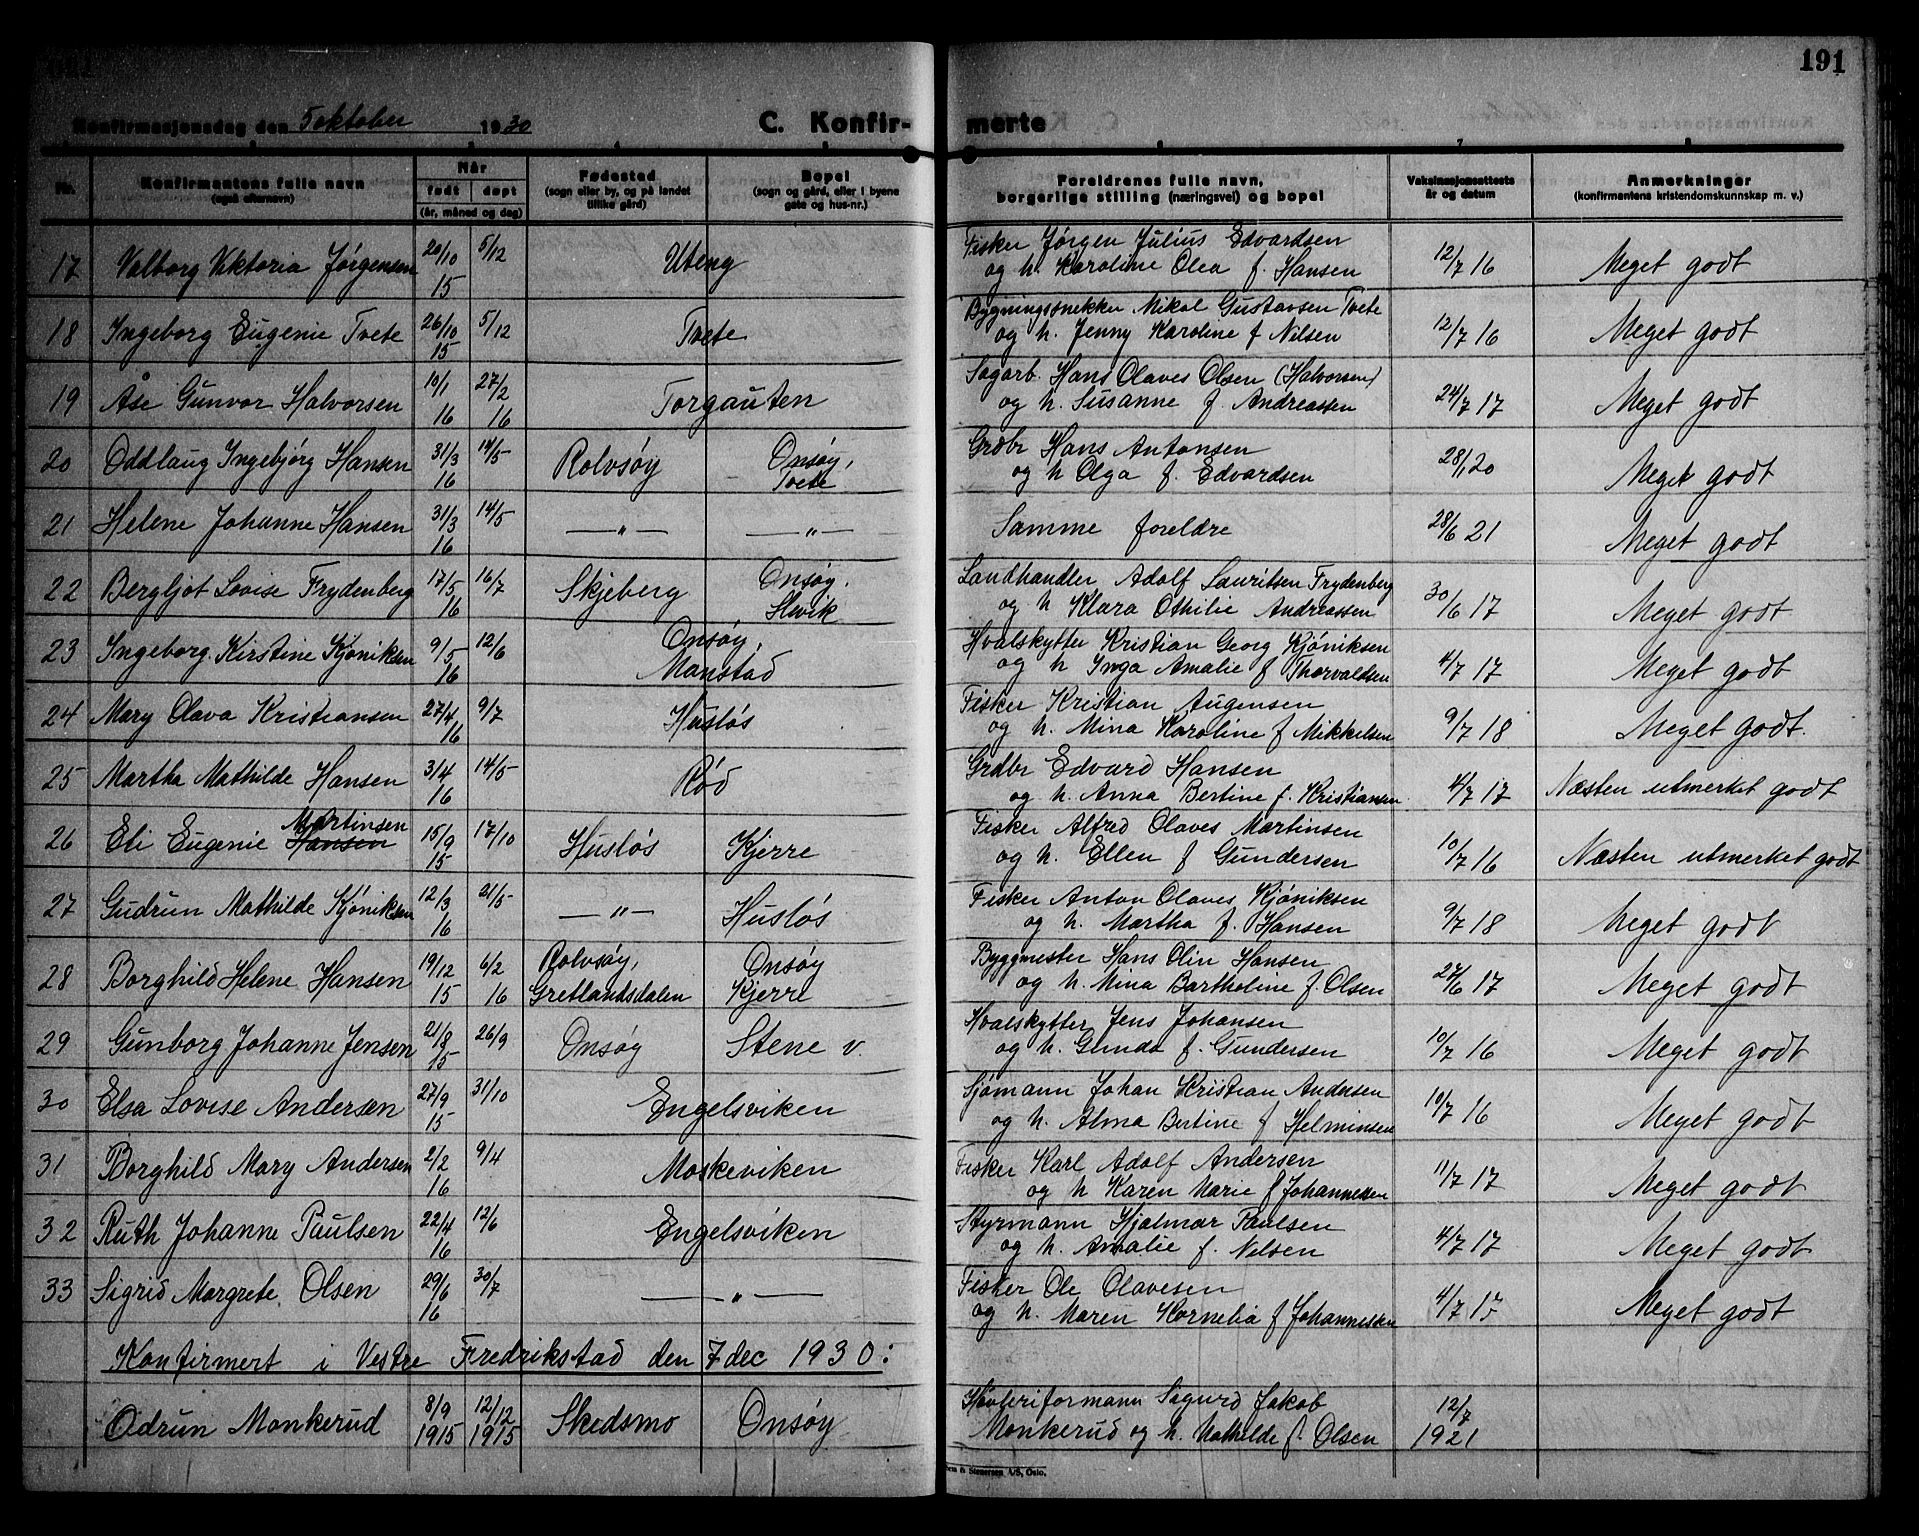 191
Konfirmasjonsdag den 5 oktober 1930 C. Konfir- merte
Nr. Konfirmantens fulle navn (også efternavn) Når født døpt (år, måned og dag) Fødestad (sogn eller by, og på landet tillike gård) Bopel (sogn og gård, eller i byene gate og hus-nr.) Foreldrenes fulle navn, borgerlige stilling (næringsvei) og bopel Vaksinasjonsattests år og datum Anmerkninger (konfirmantens kristendomskunnskap m. v.)
17 Valborg Viktoria Jørgensen 20/10 15 5/12 Uteng Fisker Jørgen Julius Edvardsen og h. Karoline Olea f. Hansen 12/7 16 Meget godt
18 Ingeborg Eugenie Tvete 26/10 15 5/12 Tvete Bygningssnekker Mikal Gustavsen Tvete og h. Jenny Karoline f Nilsen 12/7 16 Meget godt
19 Åse Gunvor Halvorsen 10/1 16 27/2 16 Torgauten Sagarb. Hans Olaves Olsen (Halvorsen) og h. Susanne f. Andreassen 24/7 17 Meget godt
20 Oddlaug Ingebjørg Hansen 31/3 16 14/5 Rolvsøy Onsøy, Tvete Grdbr Hans Antonsen og h Olga f. Edvardsen 28/1 20 Meget godt
21 Helene Johanne Hansen 31/3 16 14/5 — " — — " — Samme foreldre 28/6 21 Meget godt
22 Bergljot Lovise Frydenberg 17/5 16 16/7 Skjeberg Onsøy. Slevik Landhandler Adolf Lauritsen Frydenberg og h Klara Othilie Andreassen 30/6 17 Meget godt
23 Ingeborg Kirstine Kjøniksen 9/5 16 12/6 Onsøy, Manstad Hvalskytter Kristian Georg Kjøniksen og h Inga Amalie f Thorvaldsen 4/7 17 Meget godt
24 Mary Olava Kristiansen 27/4 16 9/7 Husløs Fisker Kristian Augensen og h. Mina Karoline f Mikkelsen 9/7 18 Meget godt.
25 Martha Mathilde Hansen 3/4 16 14/5 Rød Grdbr Edvard Hansen og h. Anna Bertine f. Kristiansen 4/7 17 Næsten utmerket godt
26 Eli Eugenie Hansen Martinsen 15/9 15 17/10 Husløs Kjerre Fisker Alfred Olaves Martinsen og h. Ellen f Gundersen 10/7 16 Næsten utmerket godt
27 Gudrun Mathilde Kjøniksen 12/3 16 21/5 — " — Husløs Fisker Anton Olaves Kjøniksen og h. Martha f. Hansen 9/7 18 Meget godt
28 Borghild Helene Hansen 19/12 15 6/2 16 Rolvsøy, Gretlandsdalen Onsøy Kjerre Byggmester Hans Olin Hansen og h. Mina Bartholine f. Olsen 27/6 17 Meget godt
29 Gunborg Johanne Jensen 21/8 15 26/9 Onsøy Stene v. Hvalskytter Jens Johansen og h. Gunda f. Gundersen 10/7 16 Meget godt
30 Elsa Lovise Andersen 27/9 15 31/10 Engelsviken Sjømann Johan Kristian Andersen og h. Alma Bertine f Helminsen 10/7 16 Meget godt
31 Borghild Mary Andersen 2/2 16 9/4 Moskeviken Fisker Karl Adolf Andersen og h Karen Marie f Johannessen 11/7 17 Meget godt
32 Ruth Johanne Paulsen 22/4 16 12/6 Engelsviken Styrmann Hjalmar Paulsen og h. Amalie f. Nilsen 4/7 17 Meget godt
33 Sigrid Margrete Olsen 29/6 16 30/7 — " — Fisker Ole Olavesen og h. Maren Kornelia f Johannessen 4/7 Meget godt
Konfirmert i Vestre Fredrikstad den 7 dec 1930:
Odrun Monkerud 8/9 1915 12/12 1915 Skedsmo Onsøy Høvleriformann Sigurd Jakob Monkerud og h. Mathilde f. Olsen 12/7 1921
Stenersen A/S, Oslo.